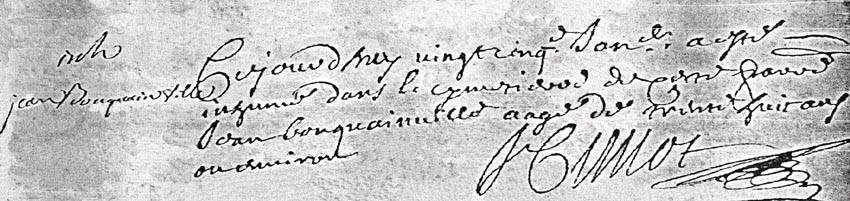 inh
jean Bouquainville
Cejourd'huy vingt cinqe Janer a esté
inhumé dans le cimetiere de ce
Jean bouquainville aagé de trente huit ans
ou environ